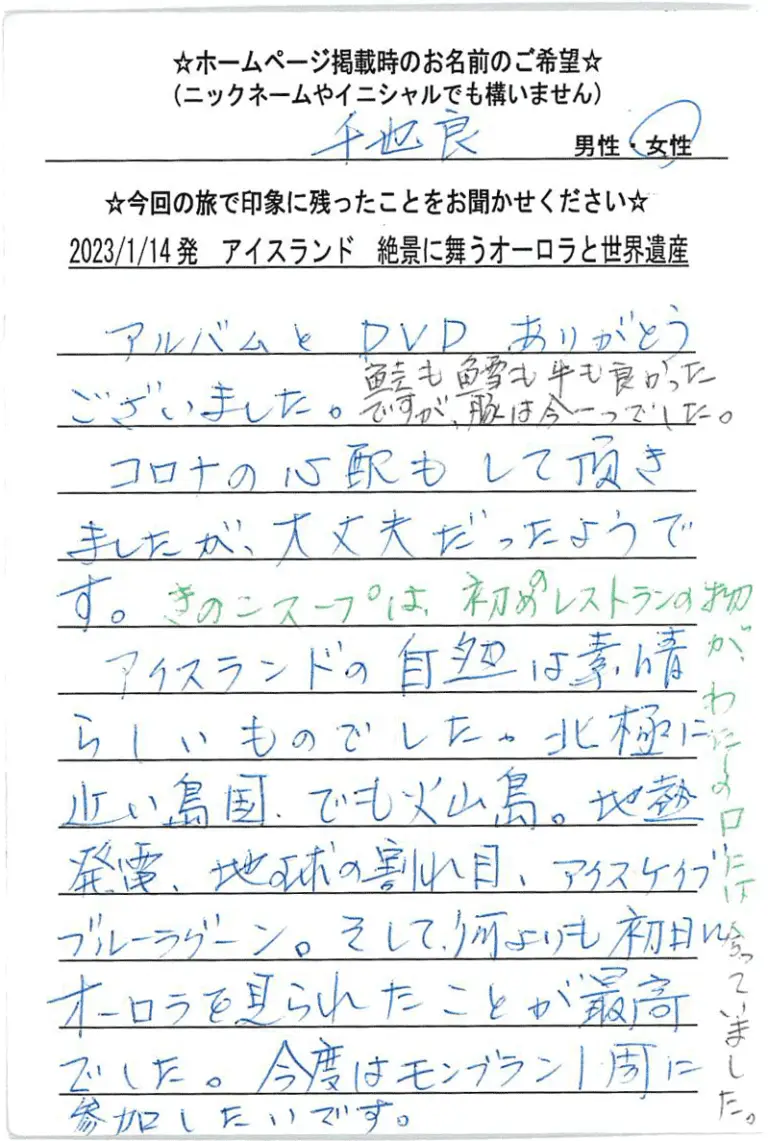 ☆ホームページ掲載時のお名前のご希望☆
(ニックネームやイニシャルでも構いません)
千也良
男性・女性
☆今回の旅で印象に残ったことをお聞かせください☆
2023/1/14発 アイスランド 絶景に舞うオーロラと世界遺産
アルバムと DVD ありがとう
ございました。
鮭も鱈も牛も良かった
ですが、豚は今一つでした。
コロナの心配もして頂き
ましたが、大丈夫だったようで
す。
きのこスープは、初めのレストランの物
が、わたしの口には合っていました。
アイスランドの自然は素晴
らしいものでした。北極に
近い島国、でも火山島。地熱
発電、地球の割れ目、アイスケイブ
ブルーラグーン。そして、何よりも初日に
オーロラを見られたことが最高
でした。今度はモンブラン1周に
参加したいです。